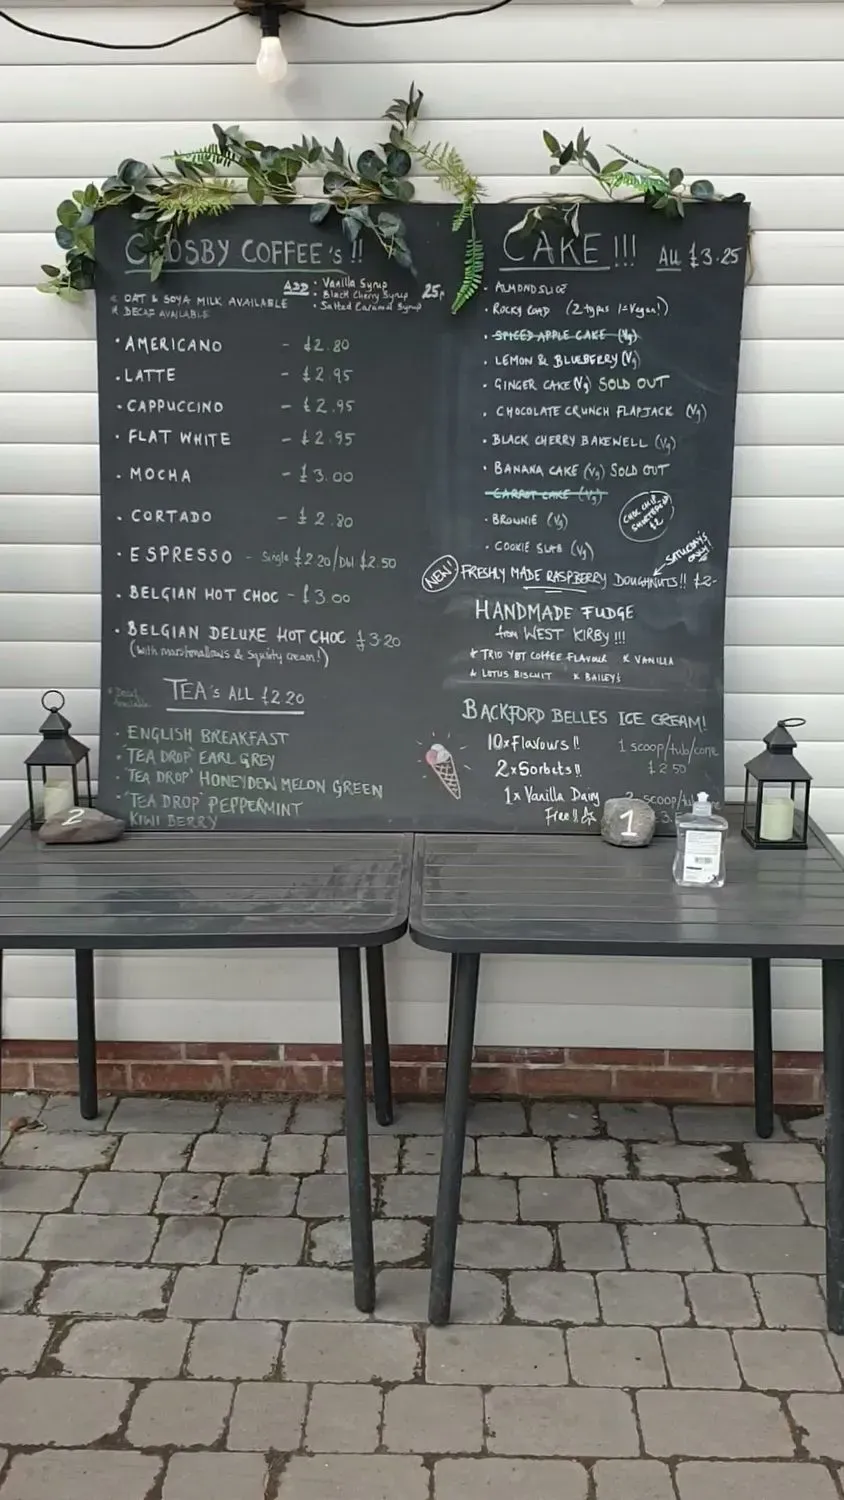 CROSBY COFFEE's !!
* OAT & SOYA MILK AVAILABLE
* DECAF AVAILABLE
ADD • Vanilla Syrup
• Black Cherry Syrup 25p
• Salted Caramel Syrup
• AMERICANO - £2.80
• LATTE - £2.95
• CAPPUCCINO - £2.95
• FLAT WHITE - £2.95
• MOCHA - £3.00
• CORTADO - £2.80
• ESPRESSO - Single £2.20/Dbl £2.50
• BELGIAN HOT CHOC - £3.00
• BELGIAN DELUXE HOT CHOC £3.20
(with marshmallows & squirty cream!)
* Decaf Available
TEA's ALL £2.20
• ENGLISH BREAKFAST
• 'TEA DROP' EARL GREY
• 'TEA DROP' HONEYDEW MELON GREEN
'TEA DROP' PEPPERMINT
KIWI BERRY
2
CAKE !!! ALL £3.25
• ALMOND SLICE
• ROCKY ROAD (2 types 1=Vegan!)
• SPICED APPLE CAKE (Vg)
• LEMON & BLUEBERRY (Vg)
• GINGER CAKE (Vg) SOLD OUT
• CHOCOLATE CRUNCH FLAPJACK (Vg)
• BLACK CHERRY BAKEWELL (Vg)
• BANANA CAKE (Vg) SOLD OUT
• CARROT CAKE (Vg)
• BROWNIE (Vg)
• COOKIE SLAB (Vg)
CHOC CHIP
SHORTBREAD
£2
SATURDAY'S
ONLY!
NEW! FRESHLY MADE RASPBERRY DOUGHNUTS!! £2-
HANDMADE FUDGE
from WEST KIRBY !!!
* TRIO YBT COFFEE FLAVOUR * VANILLA
* LOTUS BISCUIT * BAILEY's
BACKFORD BELLES ICE CREAM!
10 x Flavours !!
2 x Sorbets !!
1 x Vanilla Dairy
Free !!
1 scoop/tub/cone
£2.50
2 scoop/tub
1